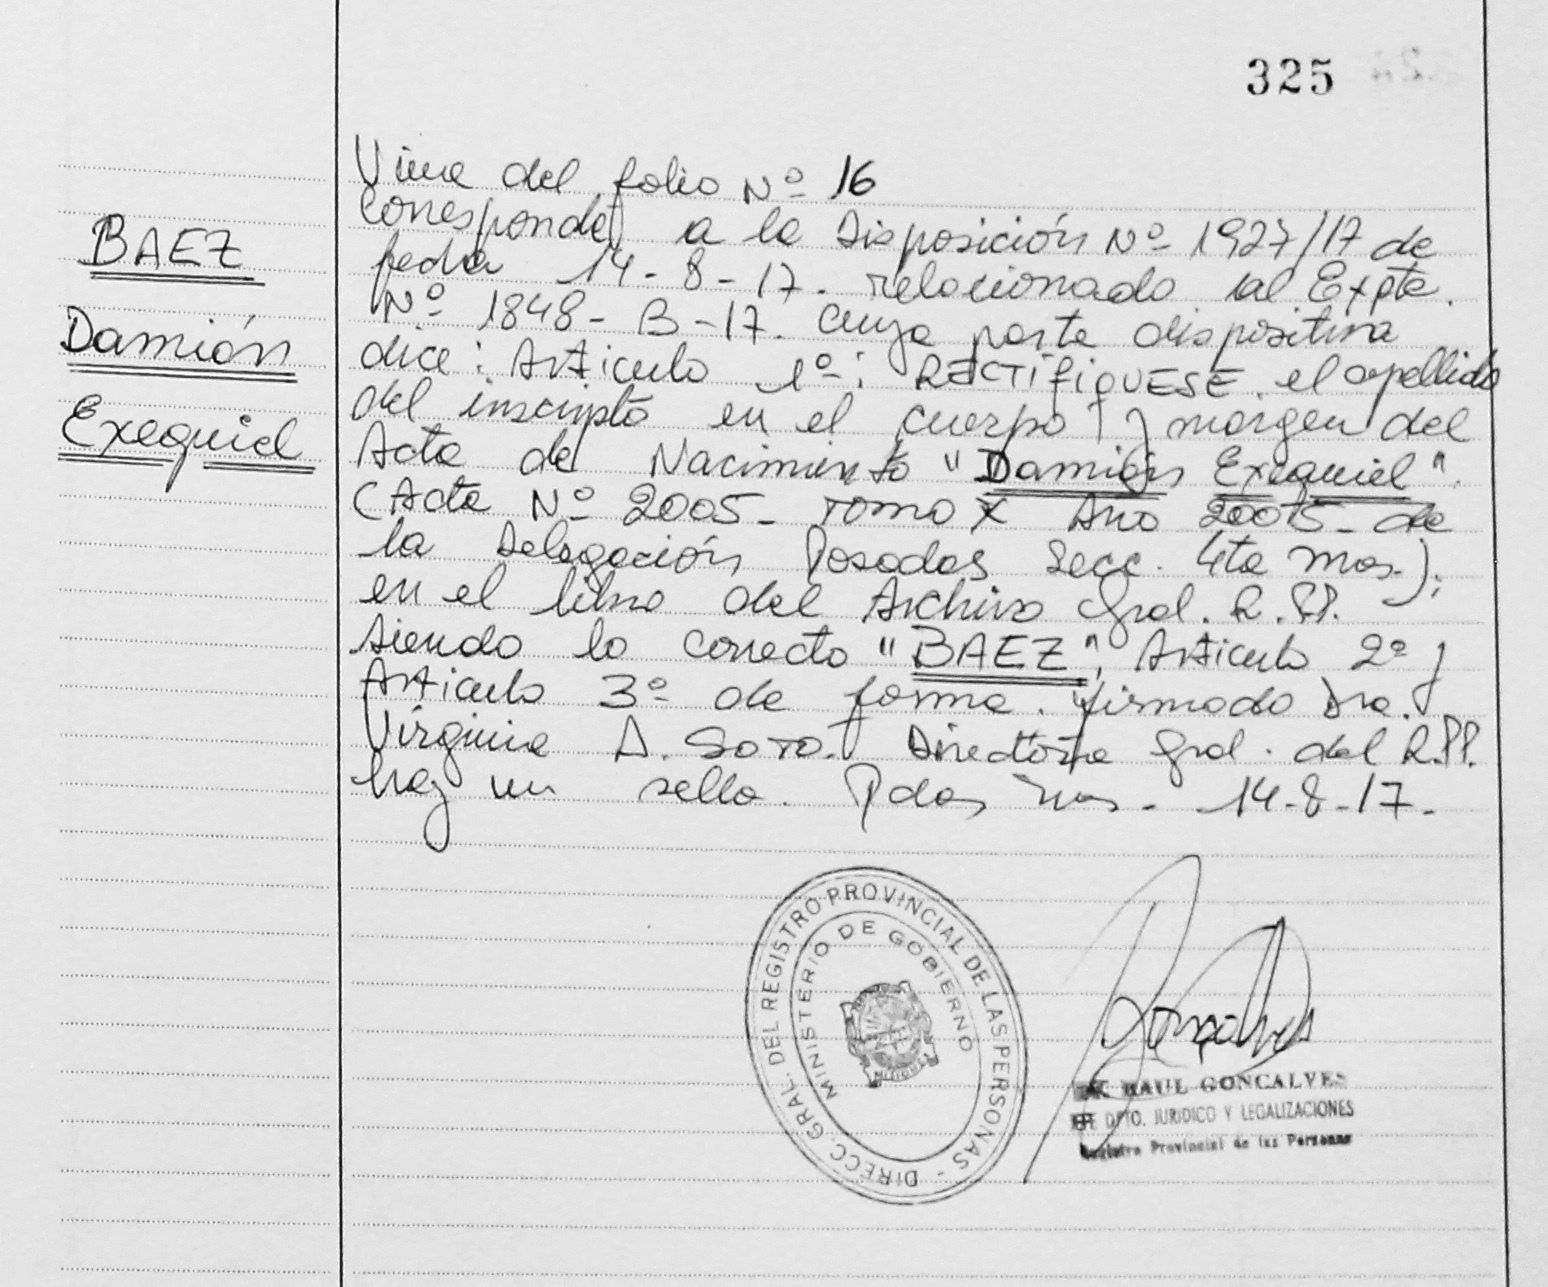 325
BAEZ
Damián
Exequiel
Viene del folio Nº 16
corresponde a la Disposición Nº 1927/17 de
fecha 14-8-17. relacionado al Expte.
Nº 1848-B-17. cuya parte dispositiva
dice: Articulo 1º: RECTIFIQUESE el apellido
del inscripto en el cuerpo y margen del
Acta de Nacimiento "Damián Exequiel".
(Acta Nº 2005- Tomo X Año 2005- de
la Delegación Posadas Secc. 4ta Mnes.);
en el libro del Archivo Gral. R.PP.
siendo lo correcto "BAEZ", Articulo 2º y
Articulo 3º de forma. firmado Dra.
Virginia A. SOTO. Directora Gral. del R.PP.
hay un sello. Pdas Mnes. 14-8-17.
DIRECC. GRAL. DEL REGISTRO PROVINCIAL DE LAS PERSONAS -
MINISTERIO DE GOBIERNO
MISIONES
Goncalves
RAUL GONCALVES
DPTO. JURIDICO Y LEGALIZACIONES
Registro Provincial de las Personas